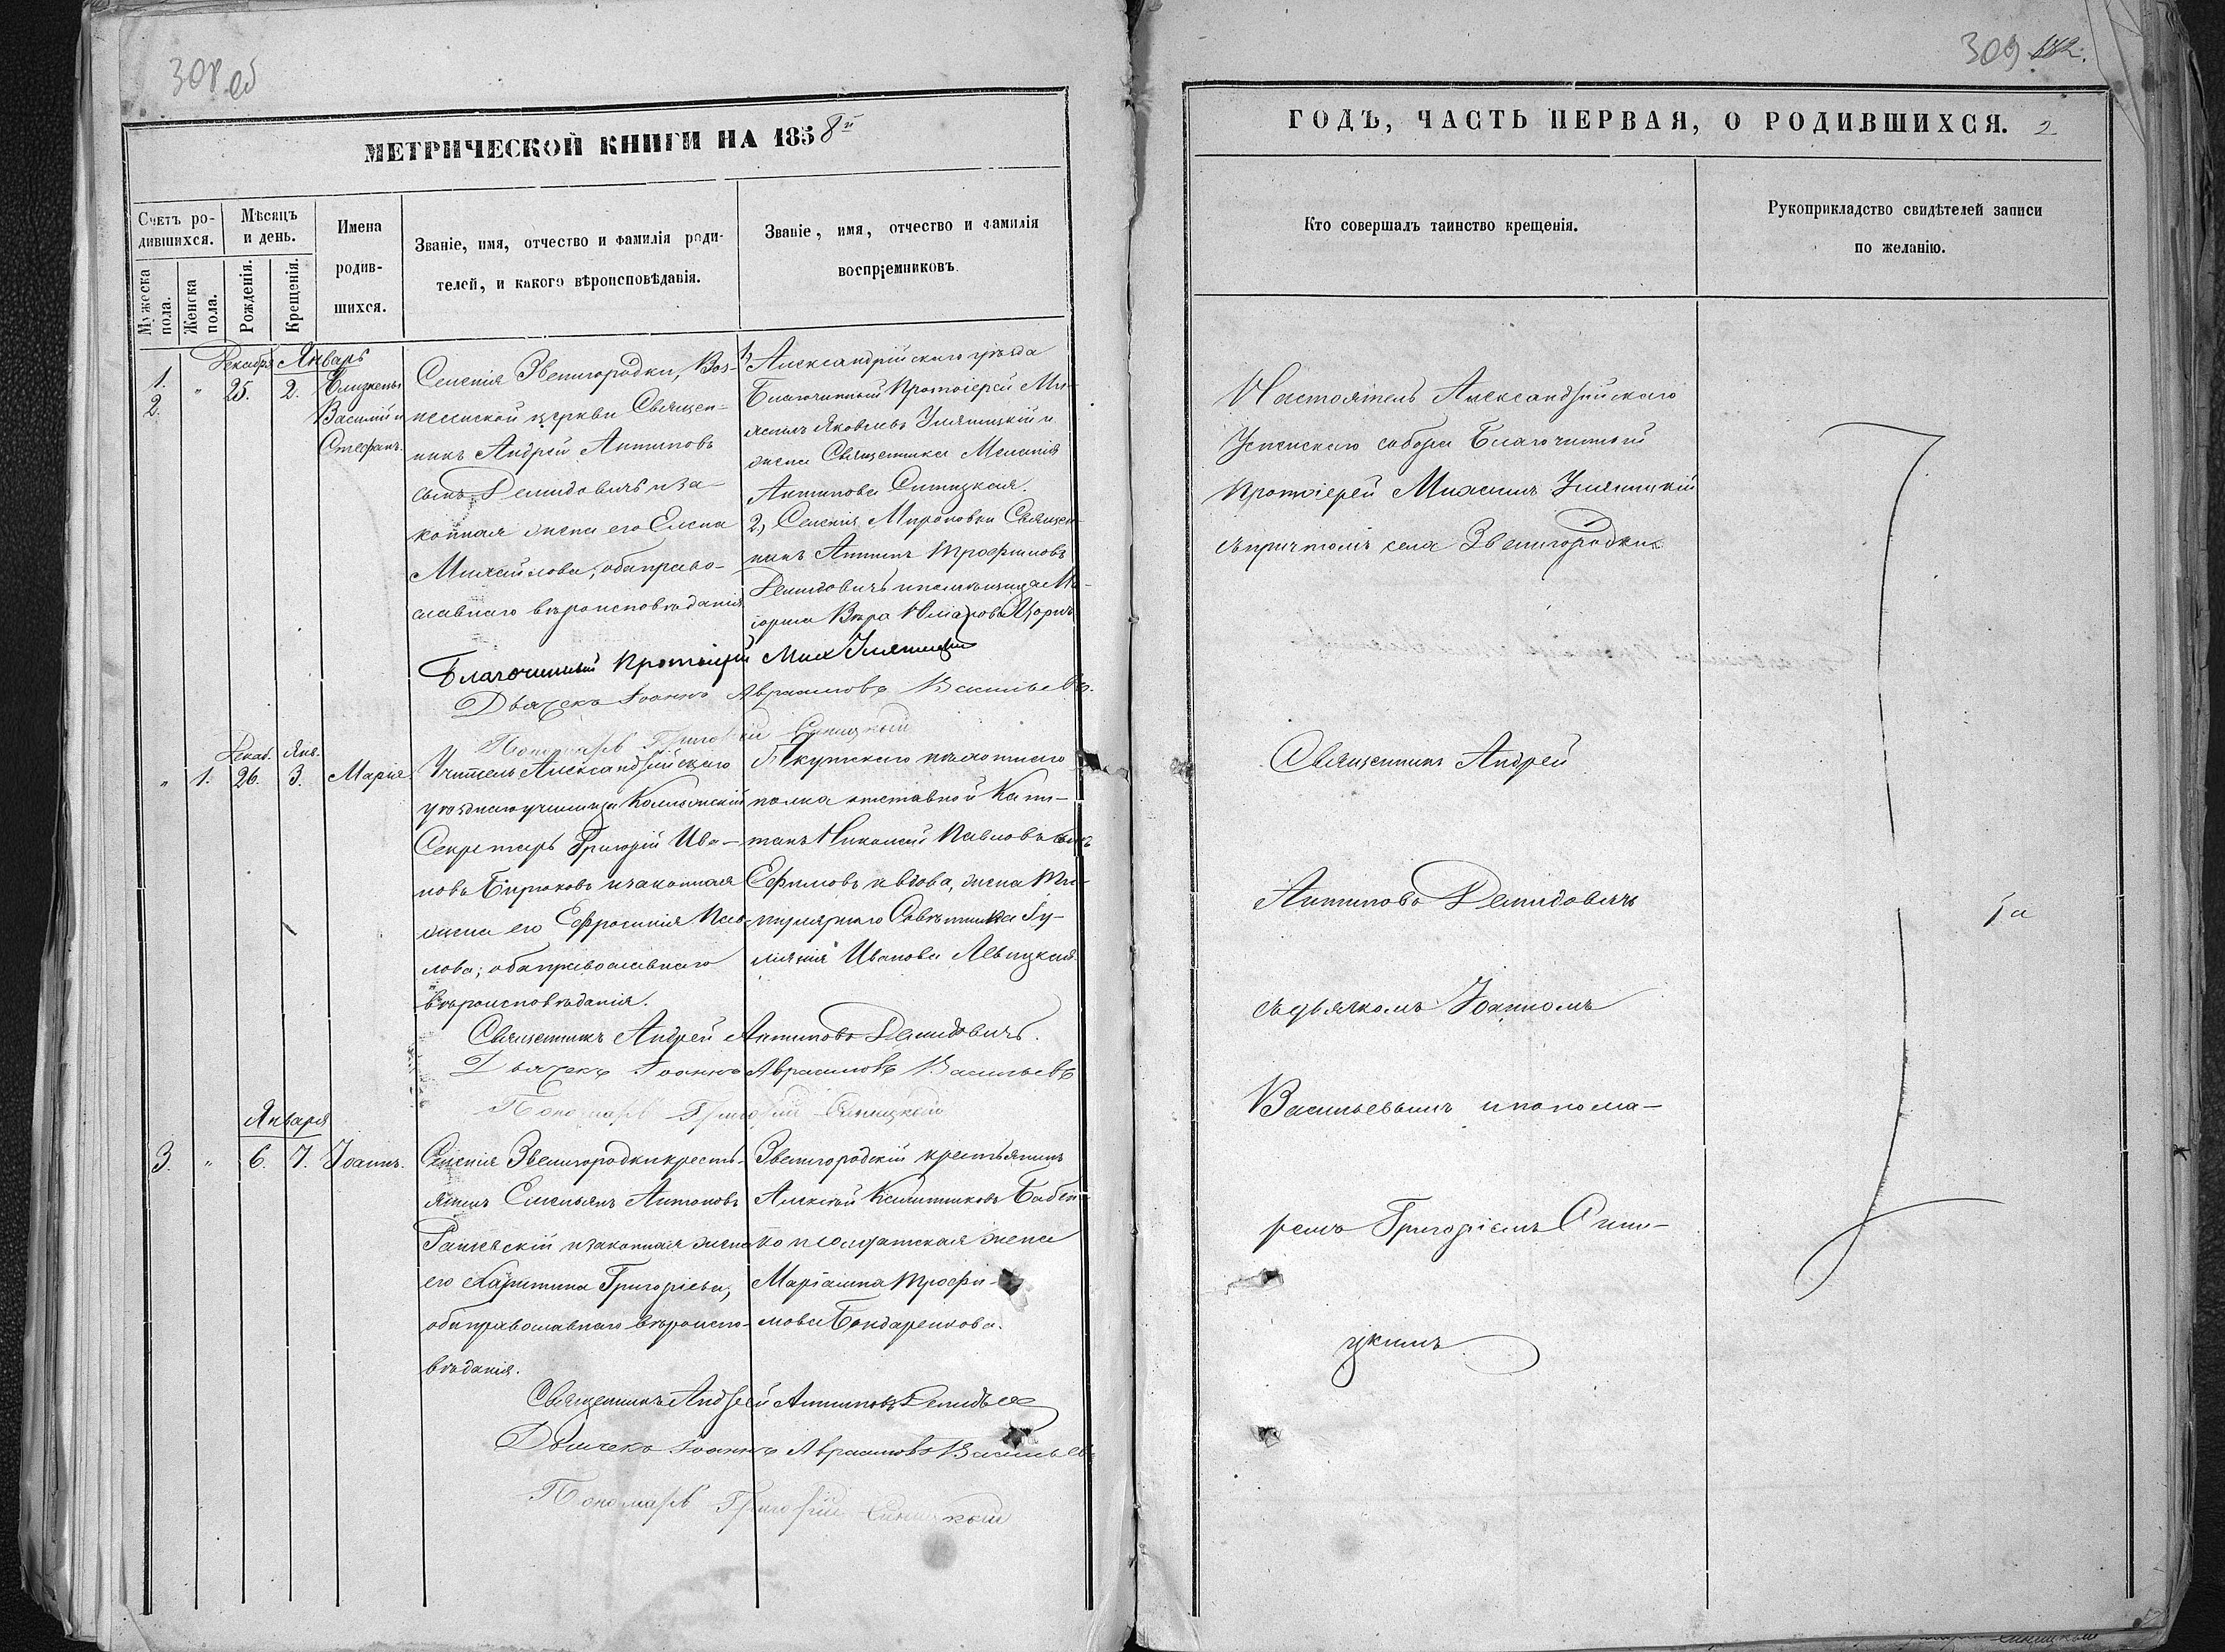 308 об
МЕТРИЧЕСКОЙ КНИГИ НА 1858й
Счетъ ро-
дившихся.
Мѣсяцъ
и день.
Имена
родив-
шихся.
Званіе, имя, отчество и фамилія роди-
телей, и какого вѣроисповѣданія.
Званіе, имя, отчество и фамилія
воспріемниковъ.
Мужеска
пола.
Женска
пола.
Рожденія.
Крещенія.
Декабря Январь
1. 2. " 25. 2.
Близнецы
Василій и
Стефанъ.
Селенія Звенигородки, Воз-
несенской церкви Священ-
никъ Андрей Антиповъ
сынъ Демидовичъ и за-
конная жена его Елена
Михайлова, оба право-
славнаго вѣроисповѣданія
1, Александрійскаго уѣзда
Благочинный Протоіерей Ми-
Яковлевъ и
жена Священника Меланія
Антипова Синицкая.
2, Селенія Мироновки Священ-
никъ Антипъ Трофимовъ
Демидовичъ и помѣщица Ма-
іорша Вѣра
Благочинный Протоіерей Мих
Дьячекъ Іоаннъ Авраамовъ Васильевъ.
Пономарь Григорій Синицкій
Декаб. Янв.
" 1. 26. 3. Марія
Учитель Александрійскаго
уѣзднаго училища Коллежскій
Секретарь Григорій Ива-
новъ Бирюковъ и законная
жена его Ефросинія Пав-
лова; оба православнаго
вѣроисповѣданія.
Якутскаго пѣхотнаго
полка отставной Капи-
танъ Николай Павловъ сынъ
Ефимовъ и вдова, жена Ти-
тулярнаго Совѣтника Іу-
ліянія Иванова Левицкая.
Священникъ Андрей Антиповъ Демидовичъ.
Дьячекъ Іоаннъ Авраамовъ Васильевъ
Пономарь Григорій Синицкій
Января
3. " 6. 7. Іоаннъ.
Селенія Звенигородки кресть-
янинъ Емельянъ Антоновъ
и законная жена
его Харитина Григорьева,
оба православнаго вѣроиспо-
вѣданія.
Звенигородскій крестьянинъ
Алексѣй Бабен-
ко и солдатская жена
Маріанна Трофи-
мова Бондаренкова.
Священникъ Андрей Антиповъ Демидовичъ
Дьячекъ Іоаннъ Авраамовъ Васильевъ
Пономарь Григорій Синицкій
309
ГОДЪ, ЧАСТЬ ПЕРВАЯ, О РОДИВШИХСЯ. 2
Кто совершалъ таинство крещенія.
Рукоприкладство свидѣтелей записи
по желанію.
Настоятель Александрійскаго
Успенскаго собора Благочинный
Протоіерей
съ причтомъ села Звенигородки
Священникъ Андрей
Антиповъ Демидовичъ
съ дьячкомъ Іоанномъ
Васильевымъ и понома-
ремъ Григоріемъ Сини-
цкимъ